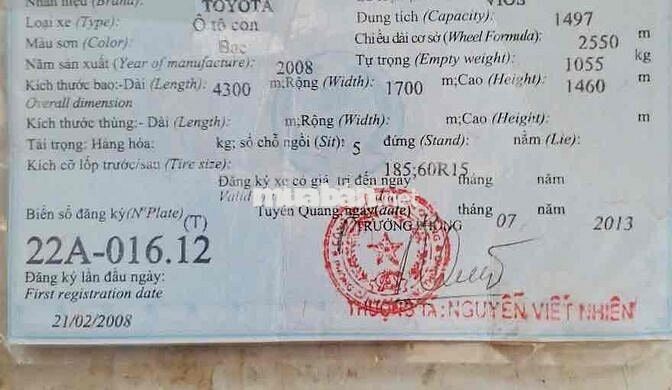 Nhãn hiệu (Brand): TOYOTA
VIOS
Loại xe (Type): Ô tô con
Dung tích (Capacity): 1497
Màu sơn (Color): Bạc
Chiều dài cơ sở (Wheel Formula): 2550 m
Năm sản xuất (Year of manufacture): 2008
Tự trọng (Empty weight): 1055 kg
Kích thước bao:-Dài (Length): 4300 m;Rộng (Width): 1700 m;Cao (Height): 1460 m
Overall dimension
Kích thước thùng:- Dài (Length): m;Rộng (Width): m;Cao (Height): m
Tải trọng: Hàng hóa: kg; số chỗ ngồi (Sit): 5 đứng (Stand): nằm (Lie):
Kích cỡ lốp trước/sau (Tire size): 185;60R15
Đăng ký xe có giá trị đến ngày tháng năm
Valid
muaban.net
Biển số đăng ký(N°Plate) (T)
Tuyên Quang,ngày(date) tháng 07 năm 2013
22A-016.12
TRƯỞNG PHÒNG
Đăng ký lần đầu ngày:
First registration date
THƯỢNG TÁ: NGUYỄN VIẾT NHIÊN
21/02/2008